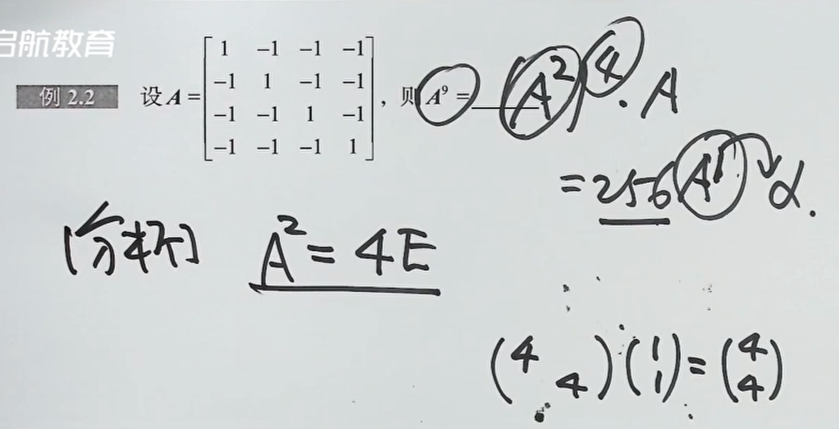 启航教育
例 2.2 设 A = [1 -1 -1 -1; -1 1 -1 -1; -1 -1 1 -1; -1 -1 -1 1], 则 A⁹ = ____ (A²)⁴·A
= 256 A α.
[分析] A² = 4E
(4 4)(1 1) = (4 4)